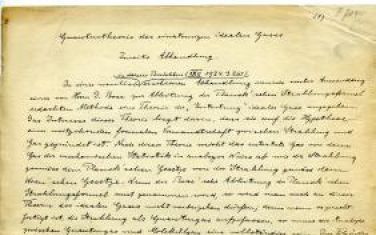 (1)
Quantentheorie des einatomigen idealen Gases
Zweite Abhandlung
In einer neulich in diesen Berichten (XXII 1924. S. 261) erschienenen Abhandlung wurde unter Anwendung
einer von Herrn D. Bose zur Ableitung der Planck'schen Strahlungsformel
erdachten Methode eine Theorie der „Entartung" idealer Gase angegeben.
Das Interesse dieser Theorie liegt darin, dass sie auf die Hypothese
einer weitgehenden formalen Verwandtschaft zwischen Strahlung und
Gas gegründet ist. Nach dieser Theorie weicht das entartete Gas von dem
Gas der mechanischen Statistik in analoger Weise ab wie die Strahlung
gemäss dem Planck'schen Gesetze von der Strahlung gemäss dem
Wien'schen Gesetze. Wenn die Bose'sche Ableitung der Planck'schen
Strahlungsformel ernst genommen wird, so wird man auch an dieser
Theorie des idealen Gases nicht vorbeigehen dürfen; denn wenn es gerecht-
fertigt ist, die Strahlung als Quantengas aufzufassen, so muss die Analogie
zwischen Quantengas und Molekülgas eine vollständige sein.